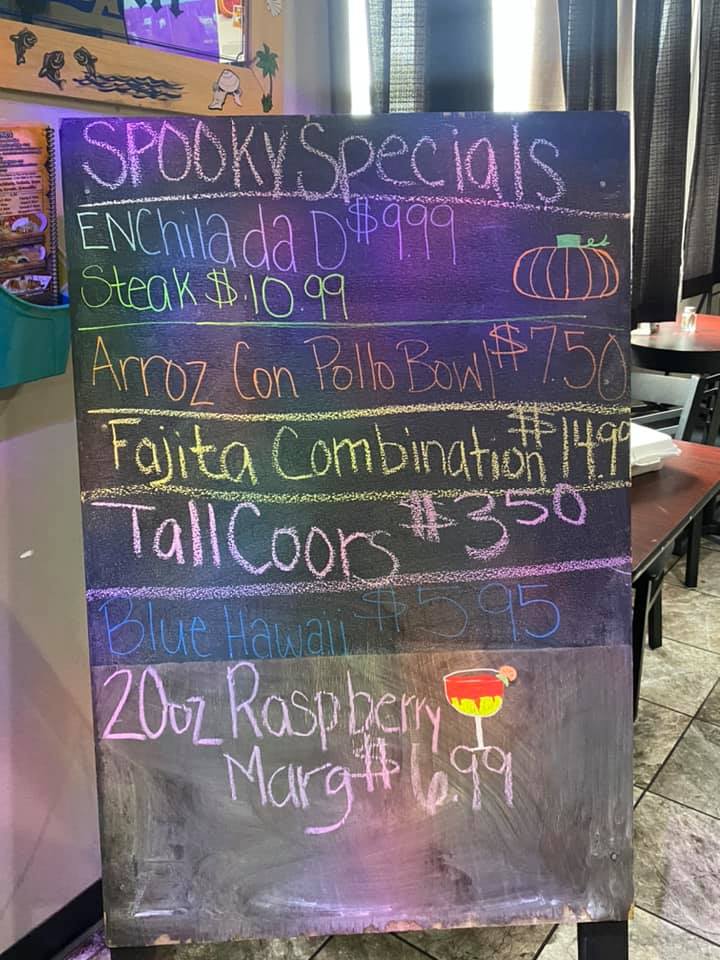 SPOOKY Specials
ENChilada D $9.99
Steak $.10.99
Arroz Con Pollo Bowl $7.50
Fajita Combination $14.99
Tall Coors $3.50
Blue Hawaii $5.95
20oz Raspberry
Marg $6.99